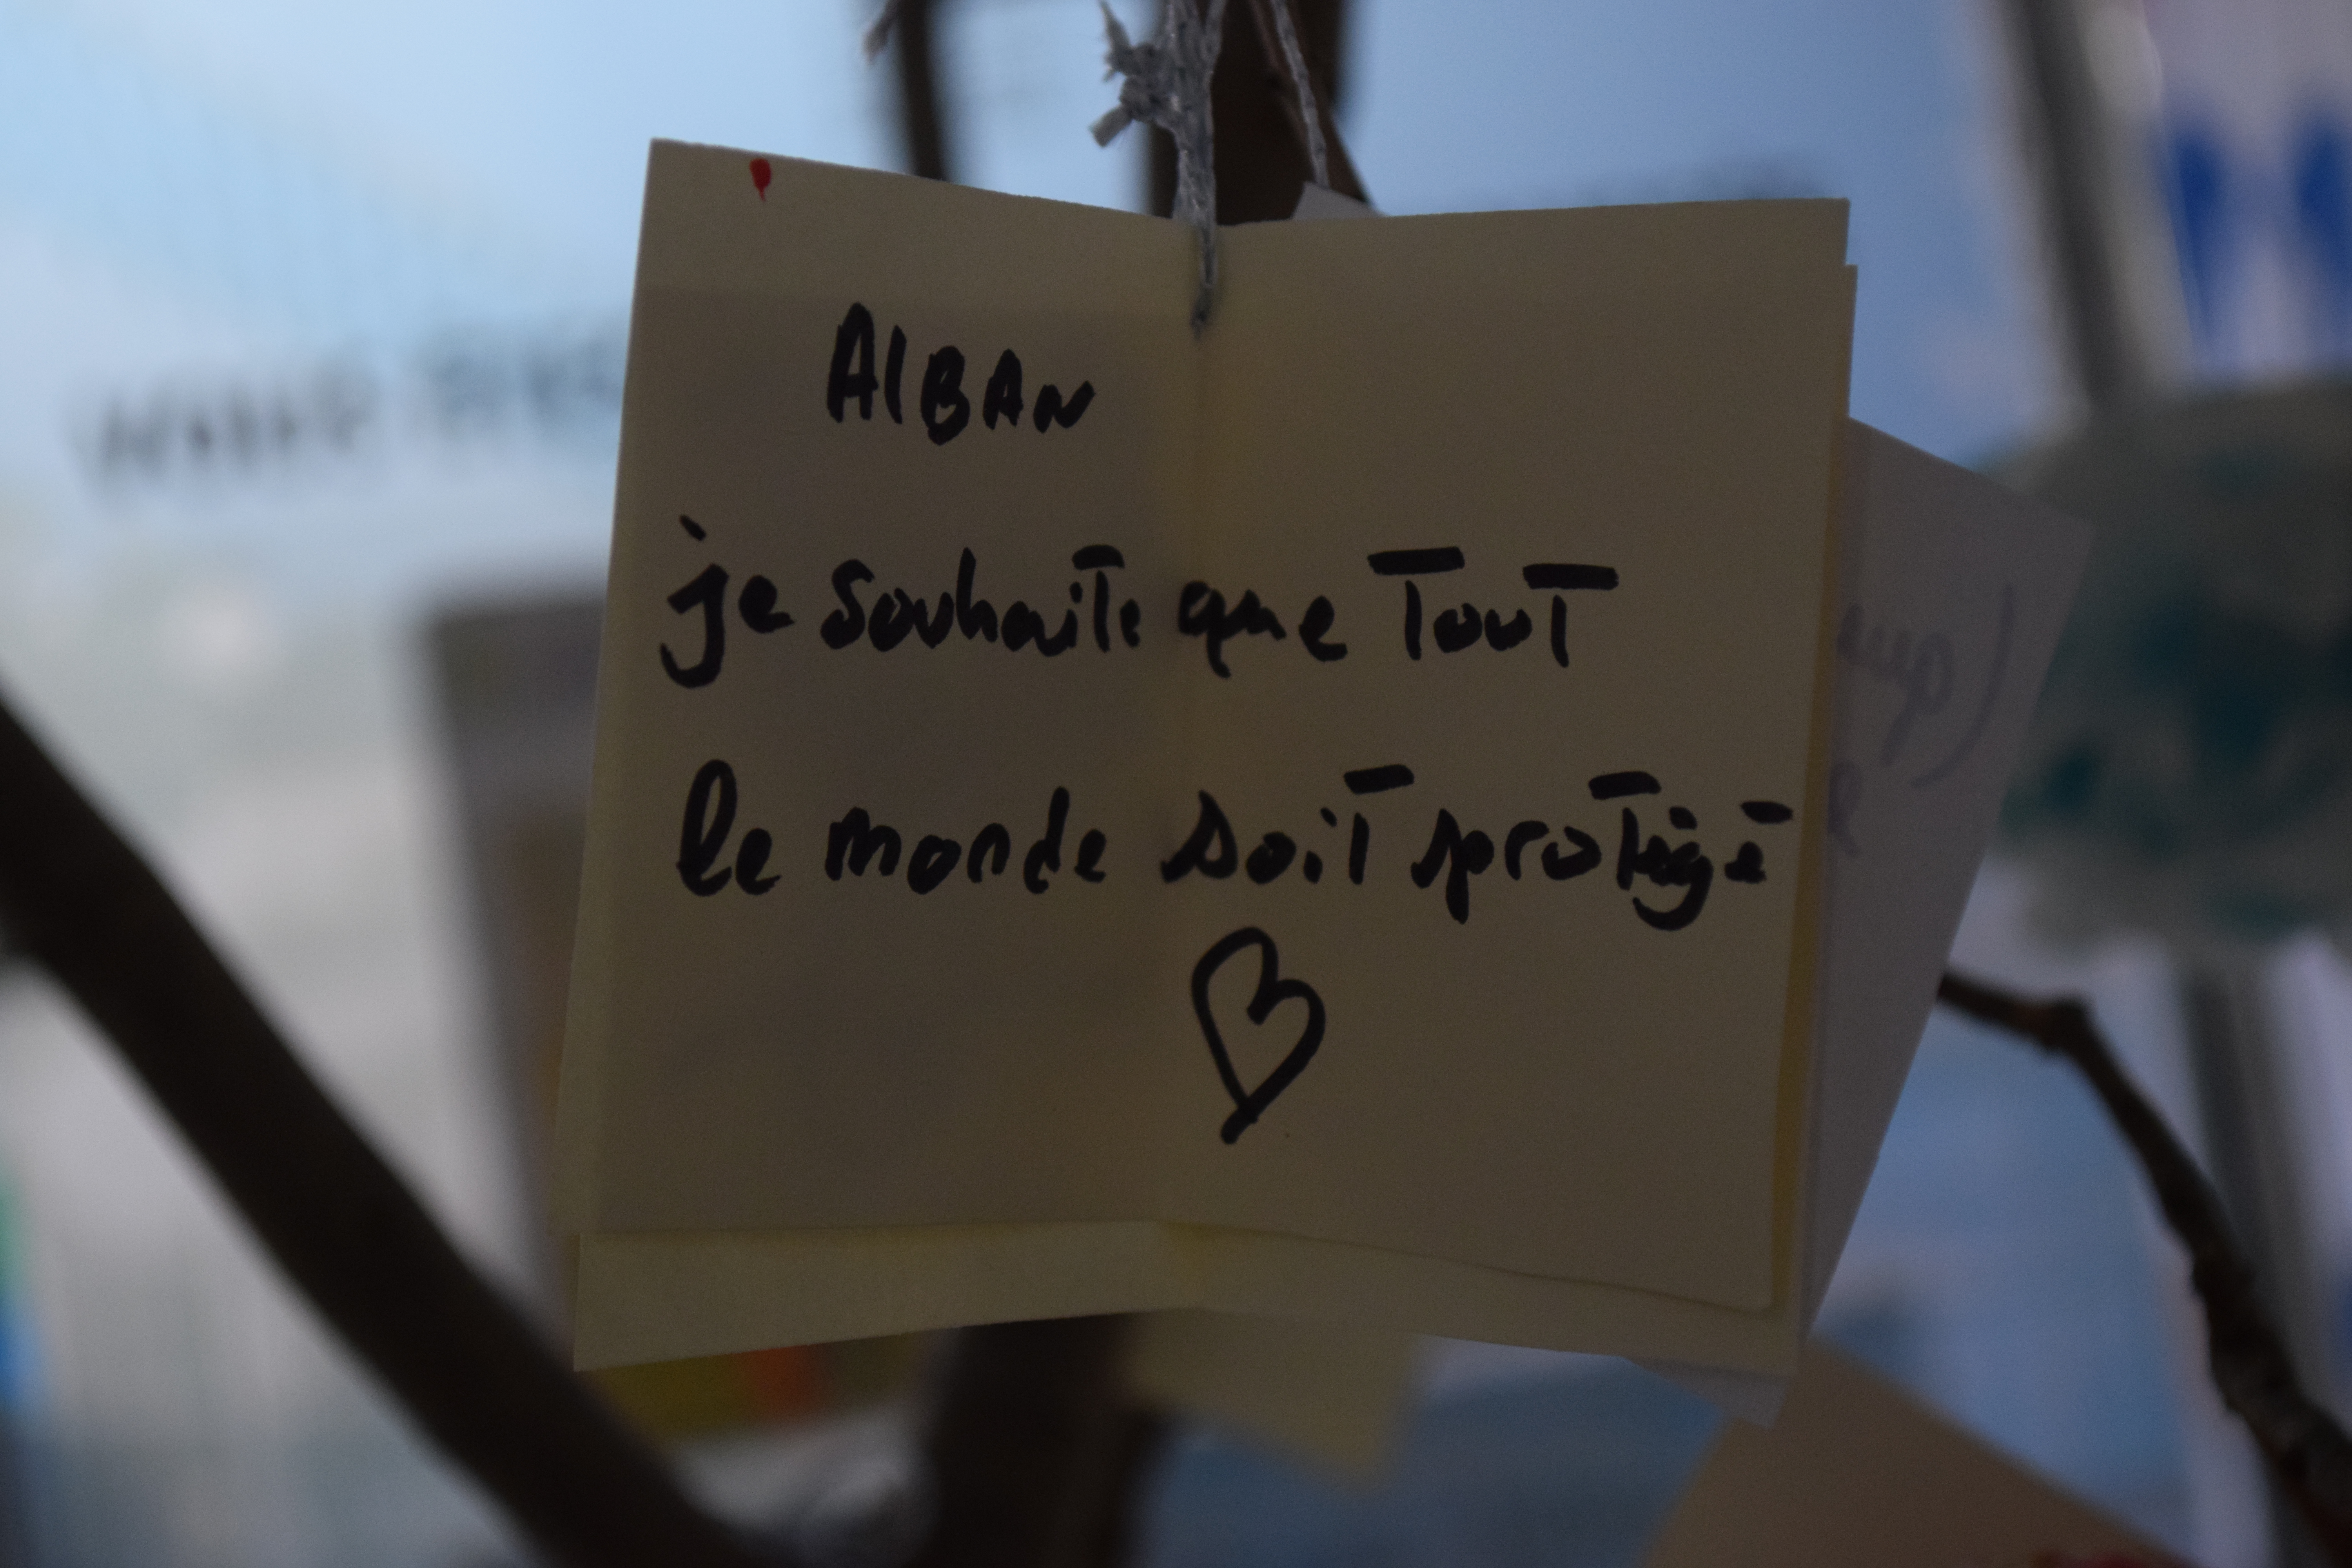 AlBAN
je souhaite que Tout
le monde soit protégé